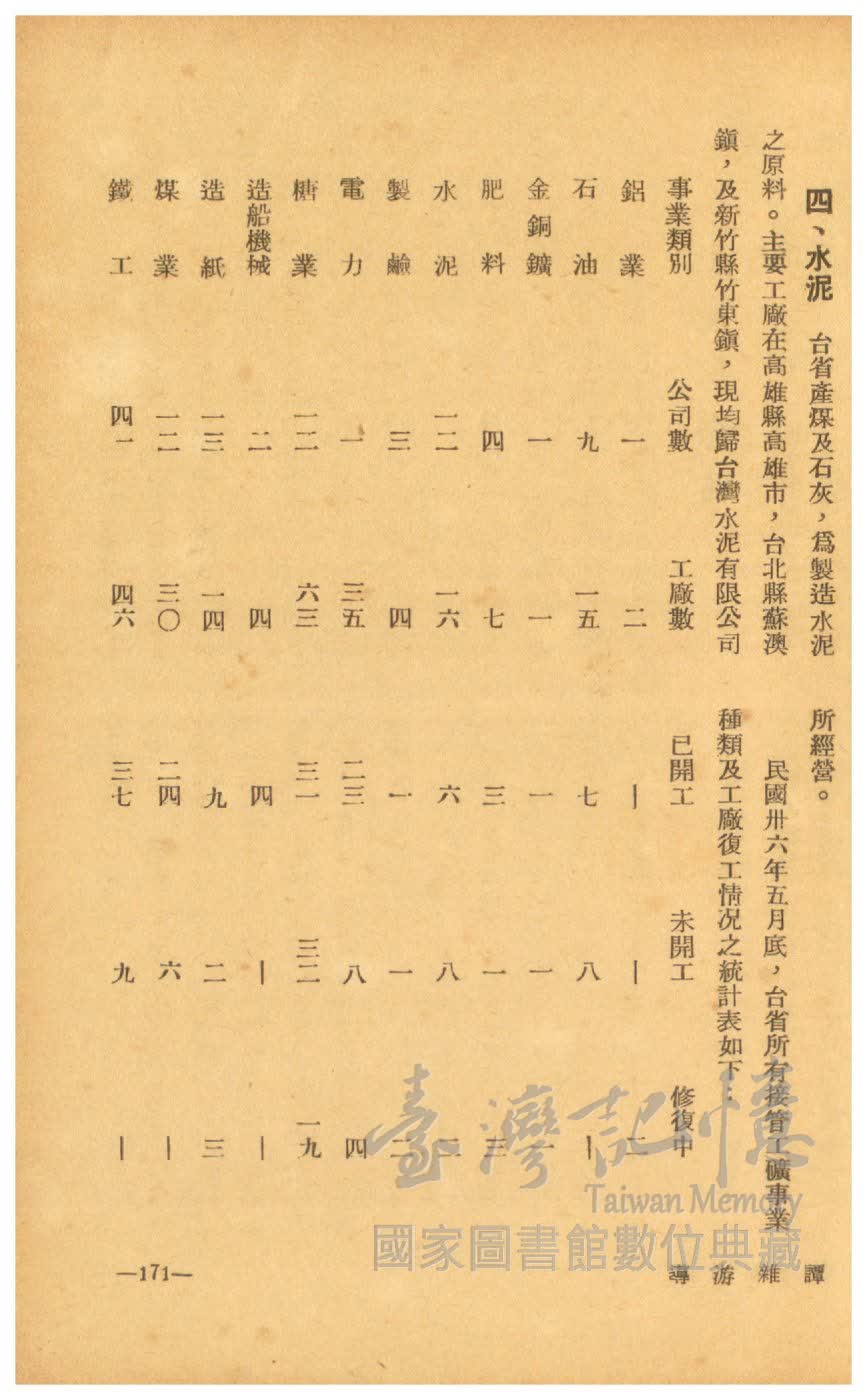 四、水泥　台省產煤及石灰，爲製造水泥
之原料。主要工廠在高雄縣高雄市，台北縣蘇澳
鎮，及新竹縣竹東鎮，現均歸台灣水泥有限公司
所經營。
民國卅六年五月底，台省所有接管工礦事業
種類及工廠復工情況之統計表如下：
事業類別　公司數　工廠數　已開工　未開工　修復中
鋁業　一　二　｜　｜　二
石油　九　一五　七　八　｜
金銅鑛　一　一　一　一　一
肥料　四　七　三　一　三
水泥　一二　一六　六　八　二
製鹼　三　四　一　一　二
電力　一　三五　二三　八　四
糖業　一二　六三　三一　三二　一九
造船機械　二　四　四　｜　｜
造紙　一三　一四　九　二　三
煤業　一二　三〇　二四　六　｜
鐵工　四一　四六　三七　九　｜
導游雜譚
—171—
臺灣記憶
Taiwan Memory
國家圖書館數位典藏